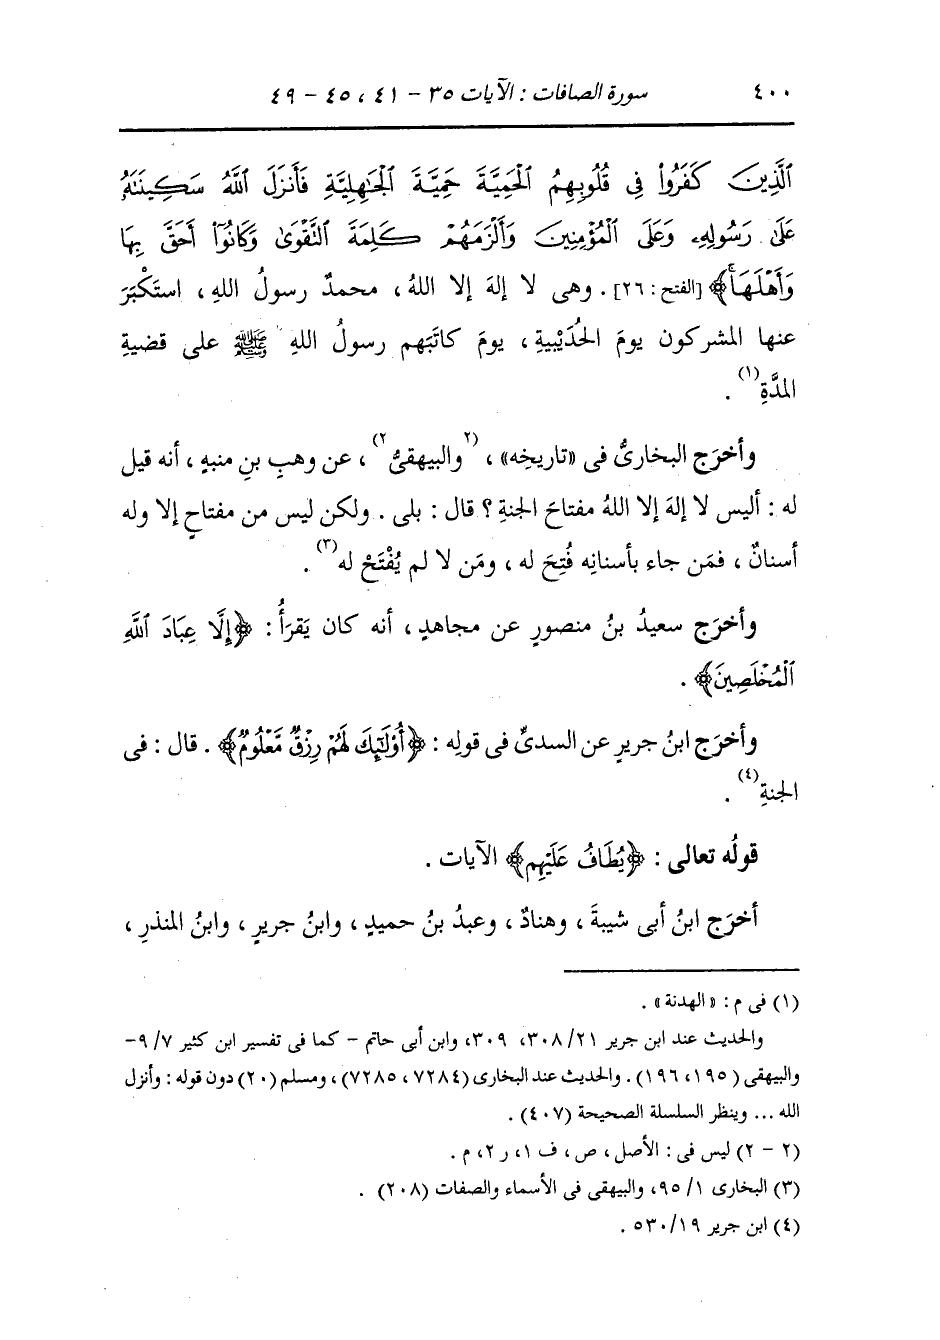 ٤٠٠ سورة الصافات : الآيات ٣٥ - ٤١ ، ٤٥ - ٤٩
ٱلَّذِينَ كَفَرُوا۟ فِى قُلُوبِهِمُ ٱلْحَمِيَّةَ حَمِيَّةَ ٱلْجَٰهِلِيَّةِ فَأَنزَلَ ٱللَّهُ سَكِينَتَهُۥ
عَلَىٰ رَسُولِهِۦ وَعَلَى ٱلْمُؤْمِنِينَ وَأَلْزَمَهُمْ كَلِمَةَ ٱلتَّقْوَىٰ وَكَانُوٓا۟ أَحَقَّ بِهَا
وَأَهْلَهَاۚ﴾ [الفتح : ٢٦] . وهى لا إلهَ إلا اللهُ ، محمدٌ رسولُ اللهِ ، استَكبَرَ
عنها المشركون يومَ الحُدَيْبيةِ ، يومَ كاتَبَهم رسولُ اللهِ ﷺ على قضيةِ
المدَّةِ(١) .
وأخرَج البخارىُّ فى «تاريخِه» ، (٢والبيهقىُّ٢) ، عن وهبِ بنِ منبهٍ ، أنه قيل
له : أليس لا إلهَ إلا اللهُ مفتاحَ الجنةِ ؟ قال : بلى . ولكن ليس من مفتاحٍ إلا وله
أسنانٌ ، فمَن جاء بأسنانِه فُتِحَ له ، ومَن لا لم يُفْتَحْ له(٣) .
وأخرَج سعيدُ بنُ منصورٍ عن مجاهدٍ ، أنه كان يَقرَأُ : ﴿إِلَّا عِبَادَ ٱللَّهِ
ٱلْمُخْلَصِينَ﴾ .
وأخرَج ابنُ جريرٍ عن السدىِّ فى قولِه : ﴿أُو۟لَٰٓئِكَ لَهُمْ رِزْقٌ مَّعْلُومٌ﴾ . قال : فى
الجنةِ(٤) .
قولُه تعالى : ﴿يُطَافُ عَلَيْهِم﴾ الآيات .
أخرَج ابنُ أبى شيبةَ ، وهنادٌ ، وعبدُ بنُ حميدٍ ، وابنُ جريرٍ ، وابنُ المنذرِ ،
(١) فى م : «الهدنة» .
والحديث عند ابن جرير ٢١/ ٣٠٨، ٣٠٩، وابن أبى حاتم - كما فى تفسير ابن كثير ٧/ ٩-
والبيهقى (١٩٥، ١٩٦) . والحديث عند البخارى (٧٢٨٤ ، ٧٢٨٥) ، ومسلم (٢٠) دون قوله : وأنزل
الله ... وينظر السلسلة الصحيحة (٤٠٧) .
(٢ - ٢) ليس فى : الأصل ، ص ، ف ١ ، ر ٢ ، م .
(٣) البخارى ١/ ٩٥، والبيهقى فى الأسماء والصفات (٢٠٨) .
(٤) ابن جرير ١٩/ ٥٣٠ .